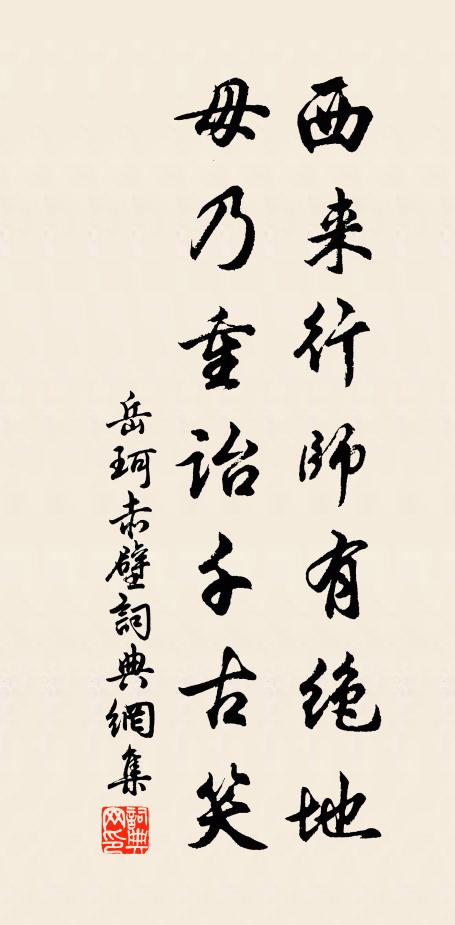 西来行師有絶地
毋乃重詒千古笑
岳珂赤壁詞典網集
詞典网印